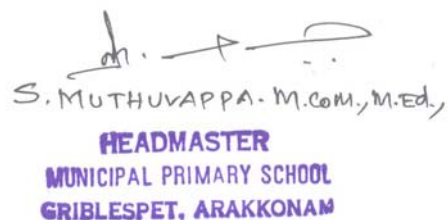 S. MUTHUVAPPA. M.COM., M.Ed.,
HEADMASTER
MUNICIPAL PRIMARY SCHOOL
GRIBLESPET, ARAKKONAM